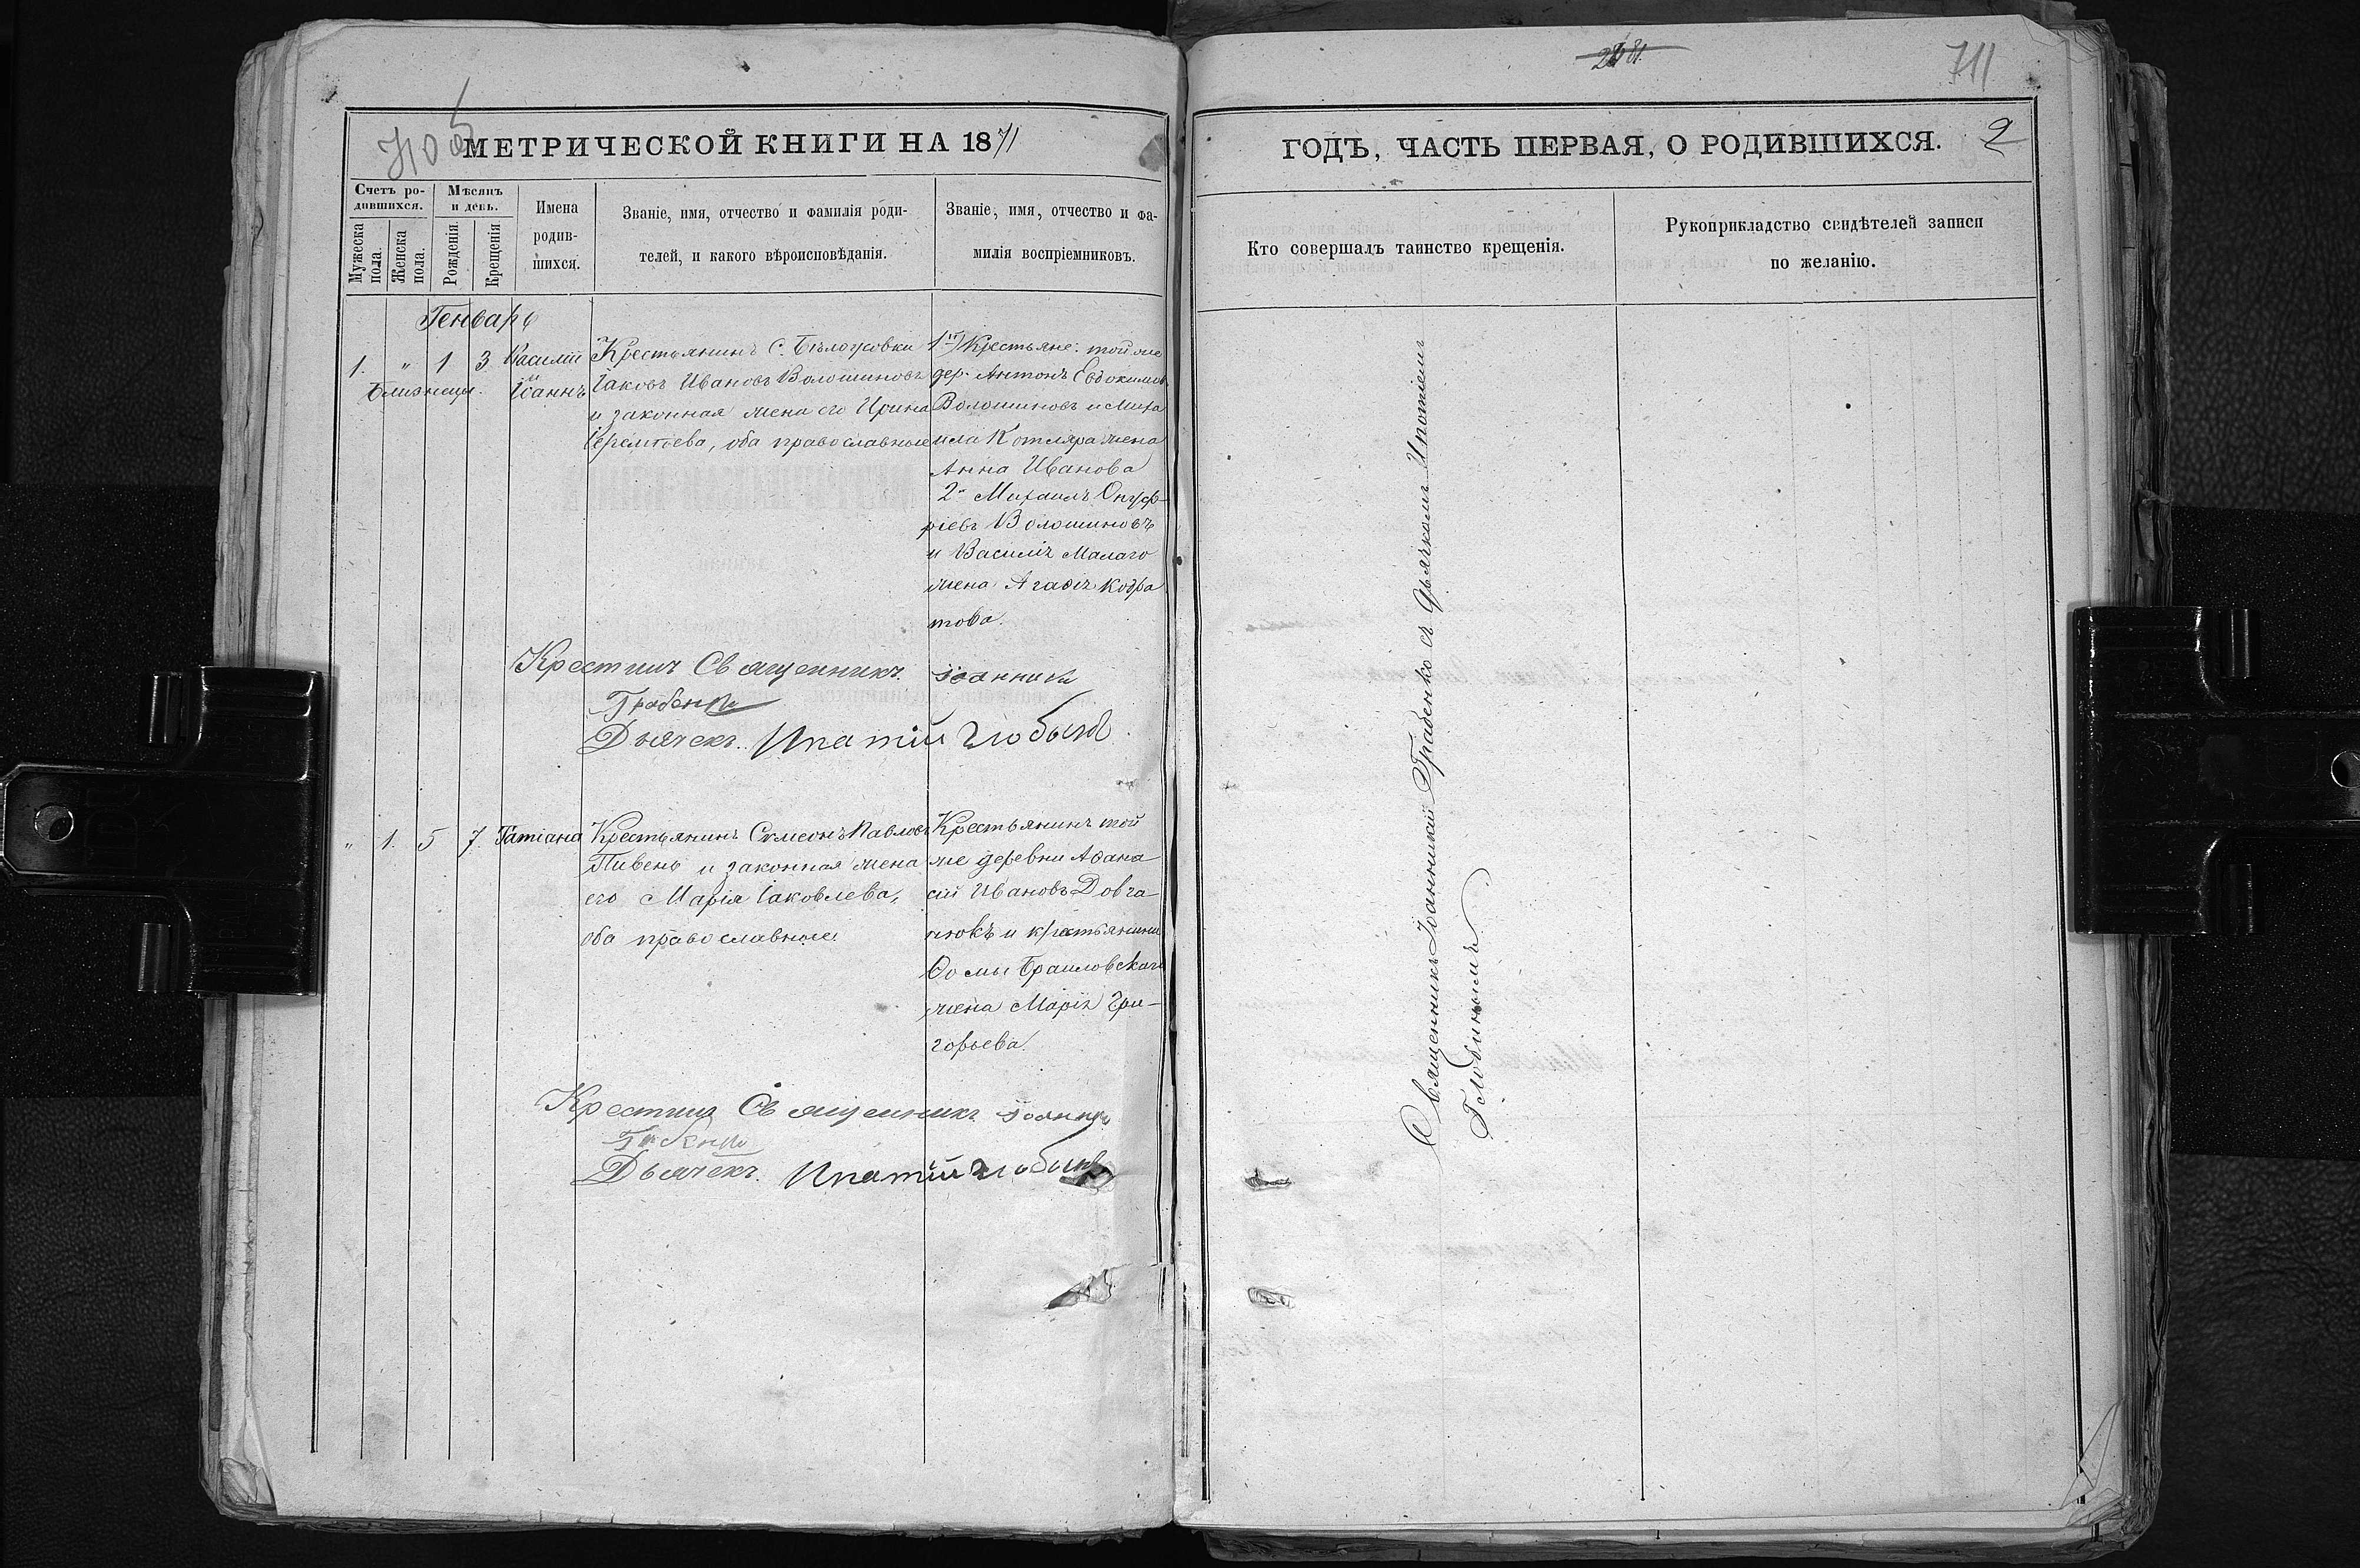 710 об
МЕТРИЧЕСКОЙ КНИГИ НА 1871
Счетъ ро-
дившихся.
Мужеска
пола.
Женска
пола.
Мѣсяцъ
и день.
Рожденія.
Крещенія
Имена
родив-
шихся.
Званіе, имя, отчество и фамилія роди-
телей, и какого вѣроисповѣданія.
Званіе, имя, отчество и фа-
милія воспріемниковъ.
Генварь
1. " 1 3 Василій
и
Іоаннъ
Близнецы.
Крестьянинъ С. Бѣлоусовки
Іаковъ Ивановъ Волошиновъ
и законная жена его Ирина
Іереміева, оба православные
1й) Крестьяне: той же
дер. Антонъ Евдокимовъ
Волошиновъ и Миха
ила Котляра жена
Анна Иванова
2й Михаилъ Онуф-
ріевъ Волошиновъ
и Василія Малаго
жена Агафія Кодра
това.
Крестилъ Священникъ Іоанникій
Грабенко
Дьячекъ. Ипатій Глобинъ
" 1. 5 7. Татіана
Крестьянинъ Симеонъ Павловъ
Пивень и законная жена
его Марія Іаковлева,
оба православные.
Крестьянинъ той
же деревни Аѳана
сій Ивановъ Довга
нюкъ и крестьянина
Ѳомы Браиловскаго
жена Марія Гри-
горьева.
Крестилъ Священникъ Іоанникій
Грабенко
Дьячекъ. Ипатій Глобинъ
711
ГОДЪ, ЧАСТЬ ПЕРВАЯ, О РОДИВШИХСЯ.
2
Кто совершалъ таинство крещенія.
Рукоприкладство свидѣтелей записи
по желанію.
Священникъ Іоанникій Грабенко съ дьячкомъ Ипатіемъ
Глобинымъ